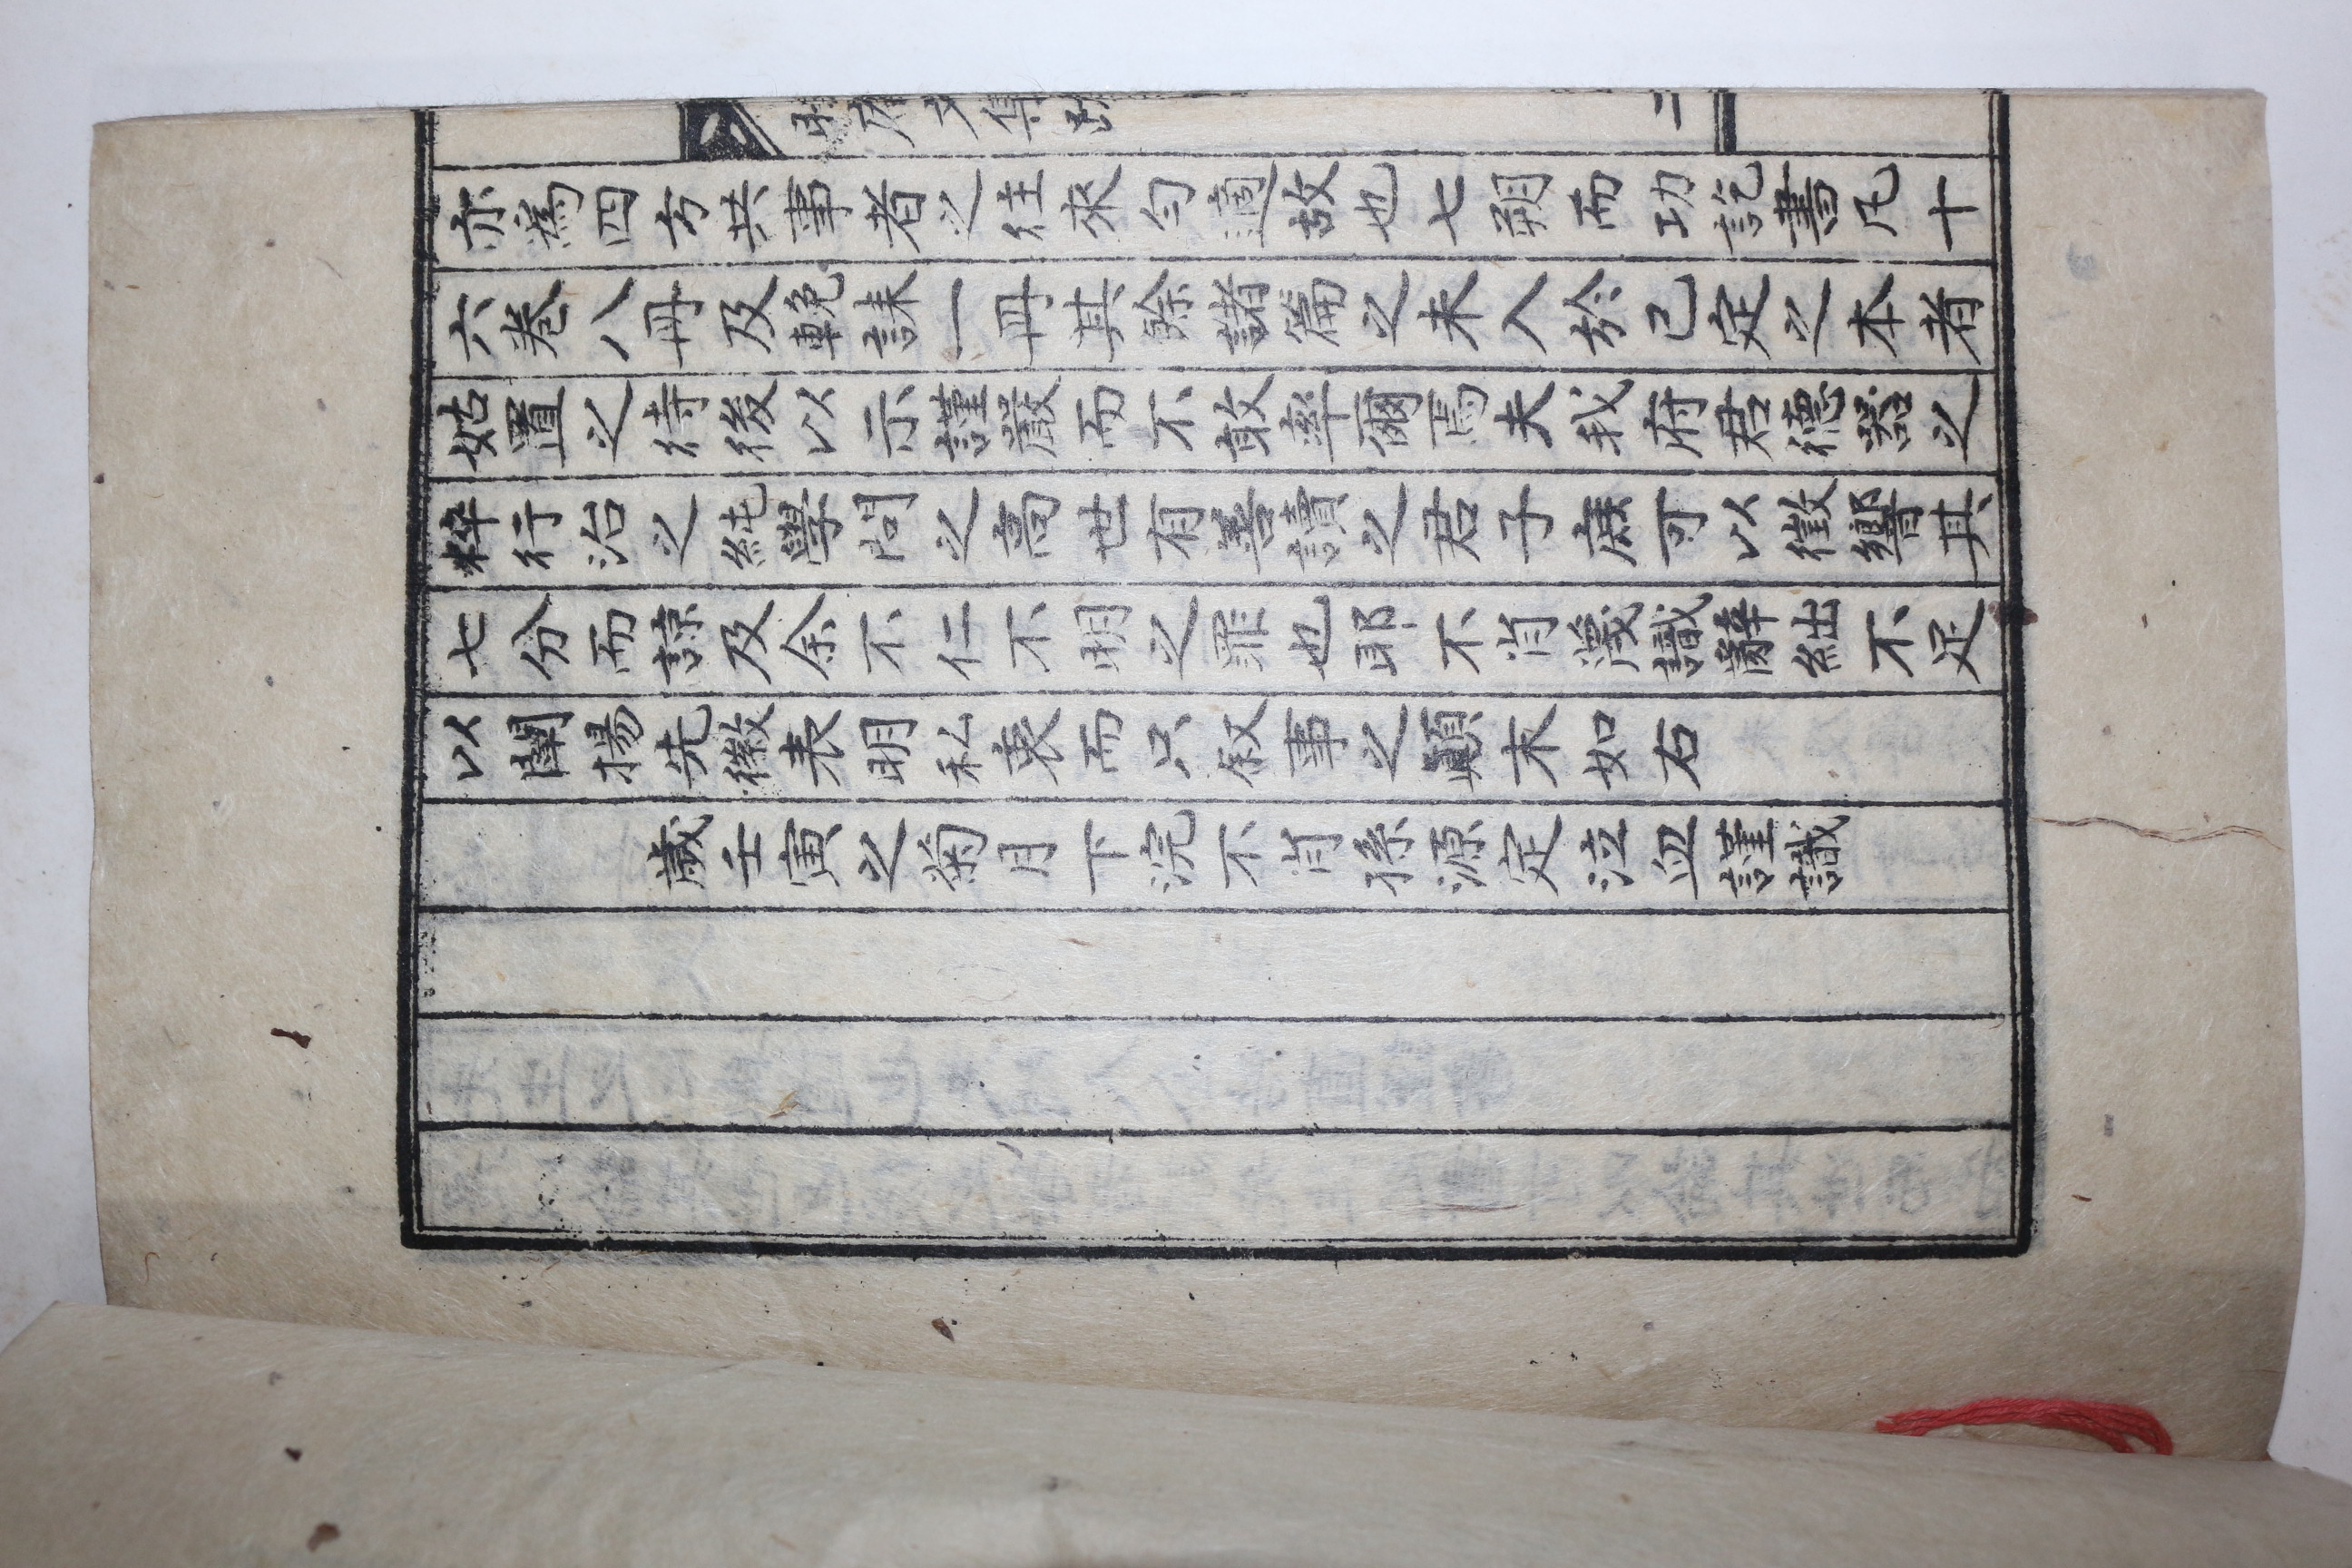 亦爲四方共事者之往來勻適故也七朔而功訖書凡十
六卷八冊及輓誄一冊其餘諸篇之未入於已定之本者
姑置之待後以示謹嚴而不敢率爾焉夫我府君德器之
粹行治之純學問之高世有善讀之君子庶可以徵響其
七分而諒及余不仁不明之罪也耶不肖蔑識辭絀不足
以闡揚先徽表明私衷而只叙事之顚末如右
歲壬寅之菊月下浣不肖孫源定泣血謹識
庵文集跋
二